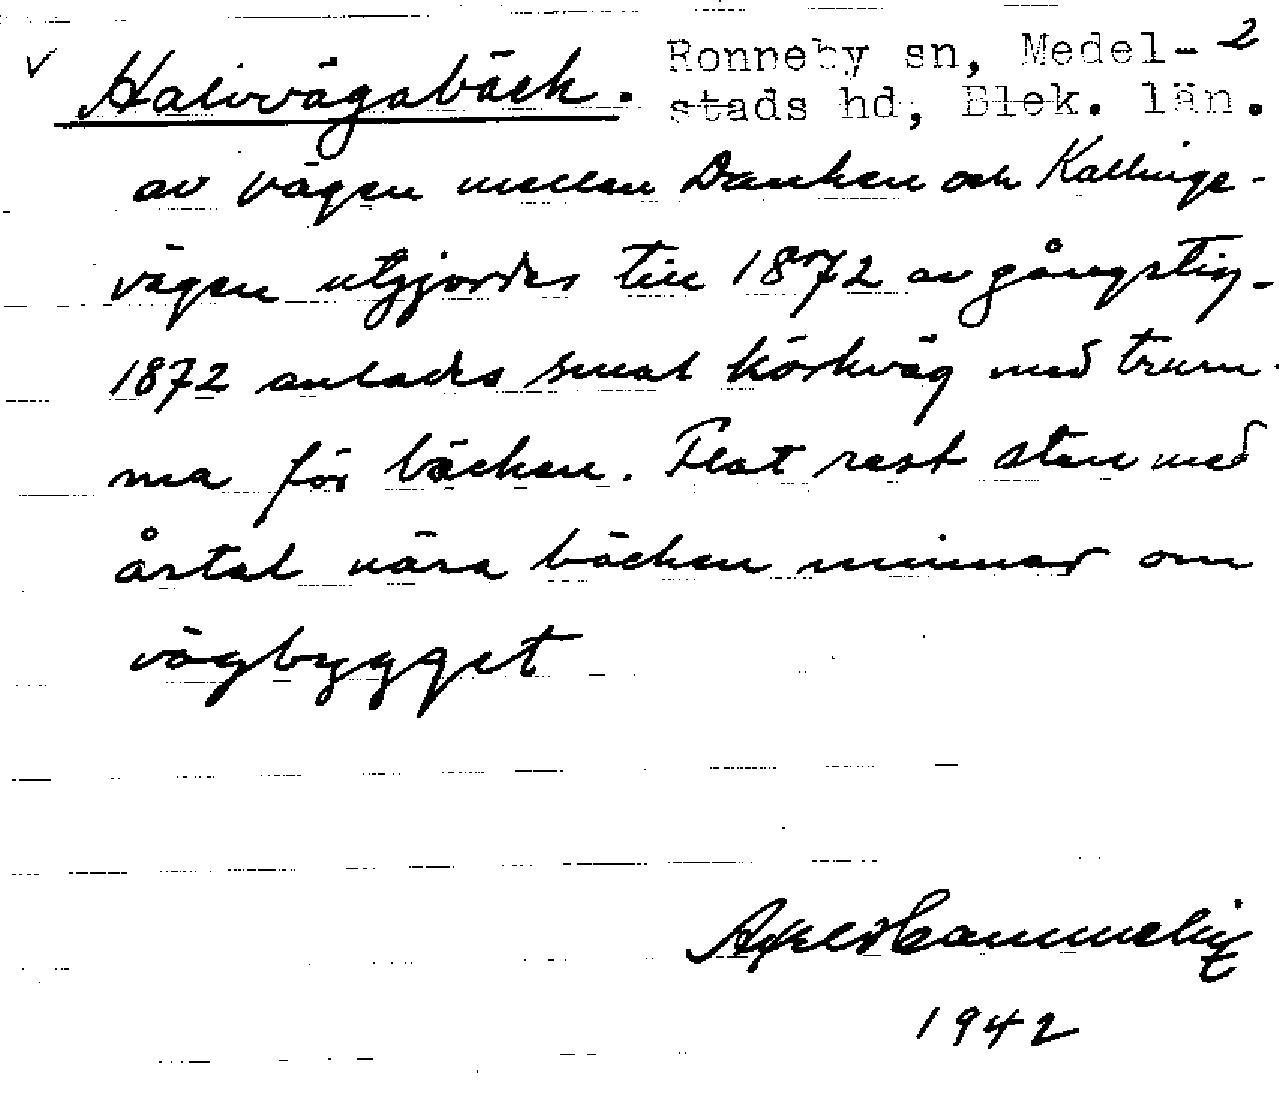 Ronneby sn, Medel- 2
Halvvägabäck. stads hd, Blek. län.
av vägen mellan Danken och Kallinge-
vägen utgjordes till 1872 av gångstig.
1872 anlades smal körväg med trum-
ma för bäcken. Flat rest sten med
årtal nära bäcken minner om
vägbygget
Axel
1942